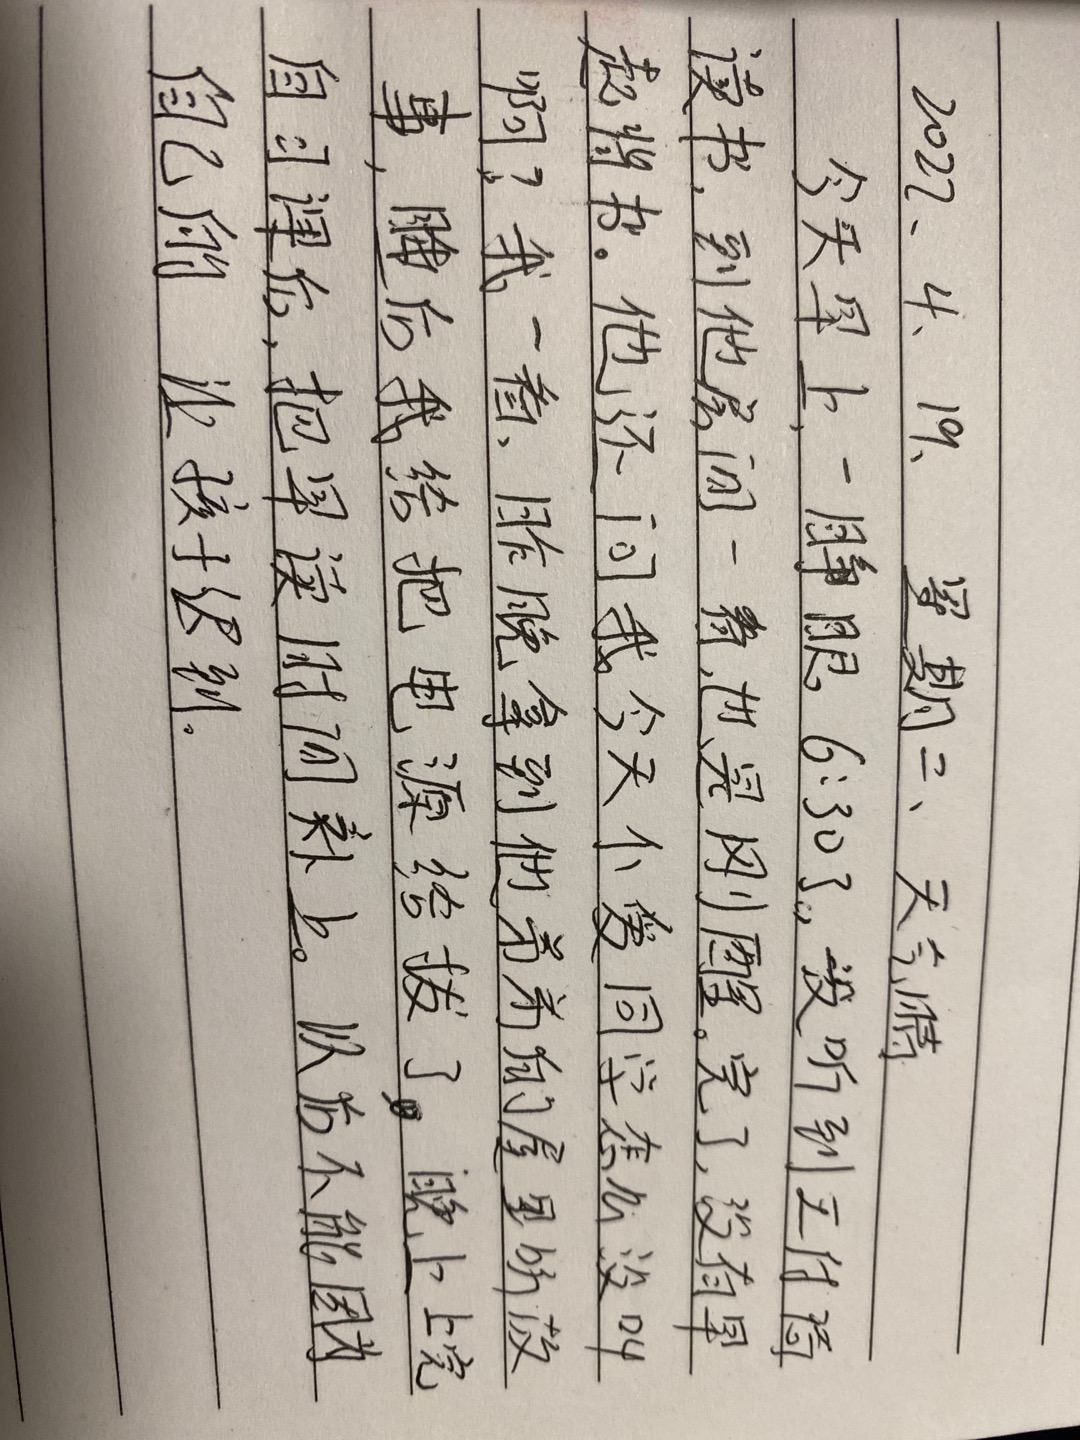 2022、4、19、 星期二、天气晴
今天早上,一睁眼6:30了,没听到王付荷
读书,到他房间一看,也是刚刚醒。完了,没有早
起背书。他还问我今天小爱同学怎么没叫
啊?我一看,昨晚拿到他弟弟的屋里听故
事,睡后我给把电源给拔了。晚上上完
自习课后,把早读时间补上。以后不能因为
自己的 让孩子迟到。